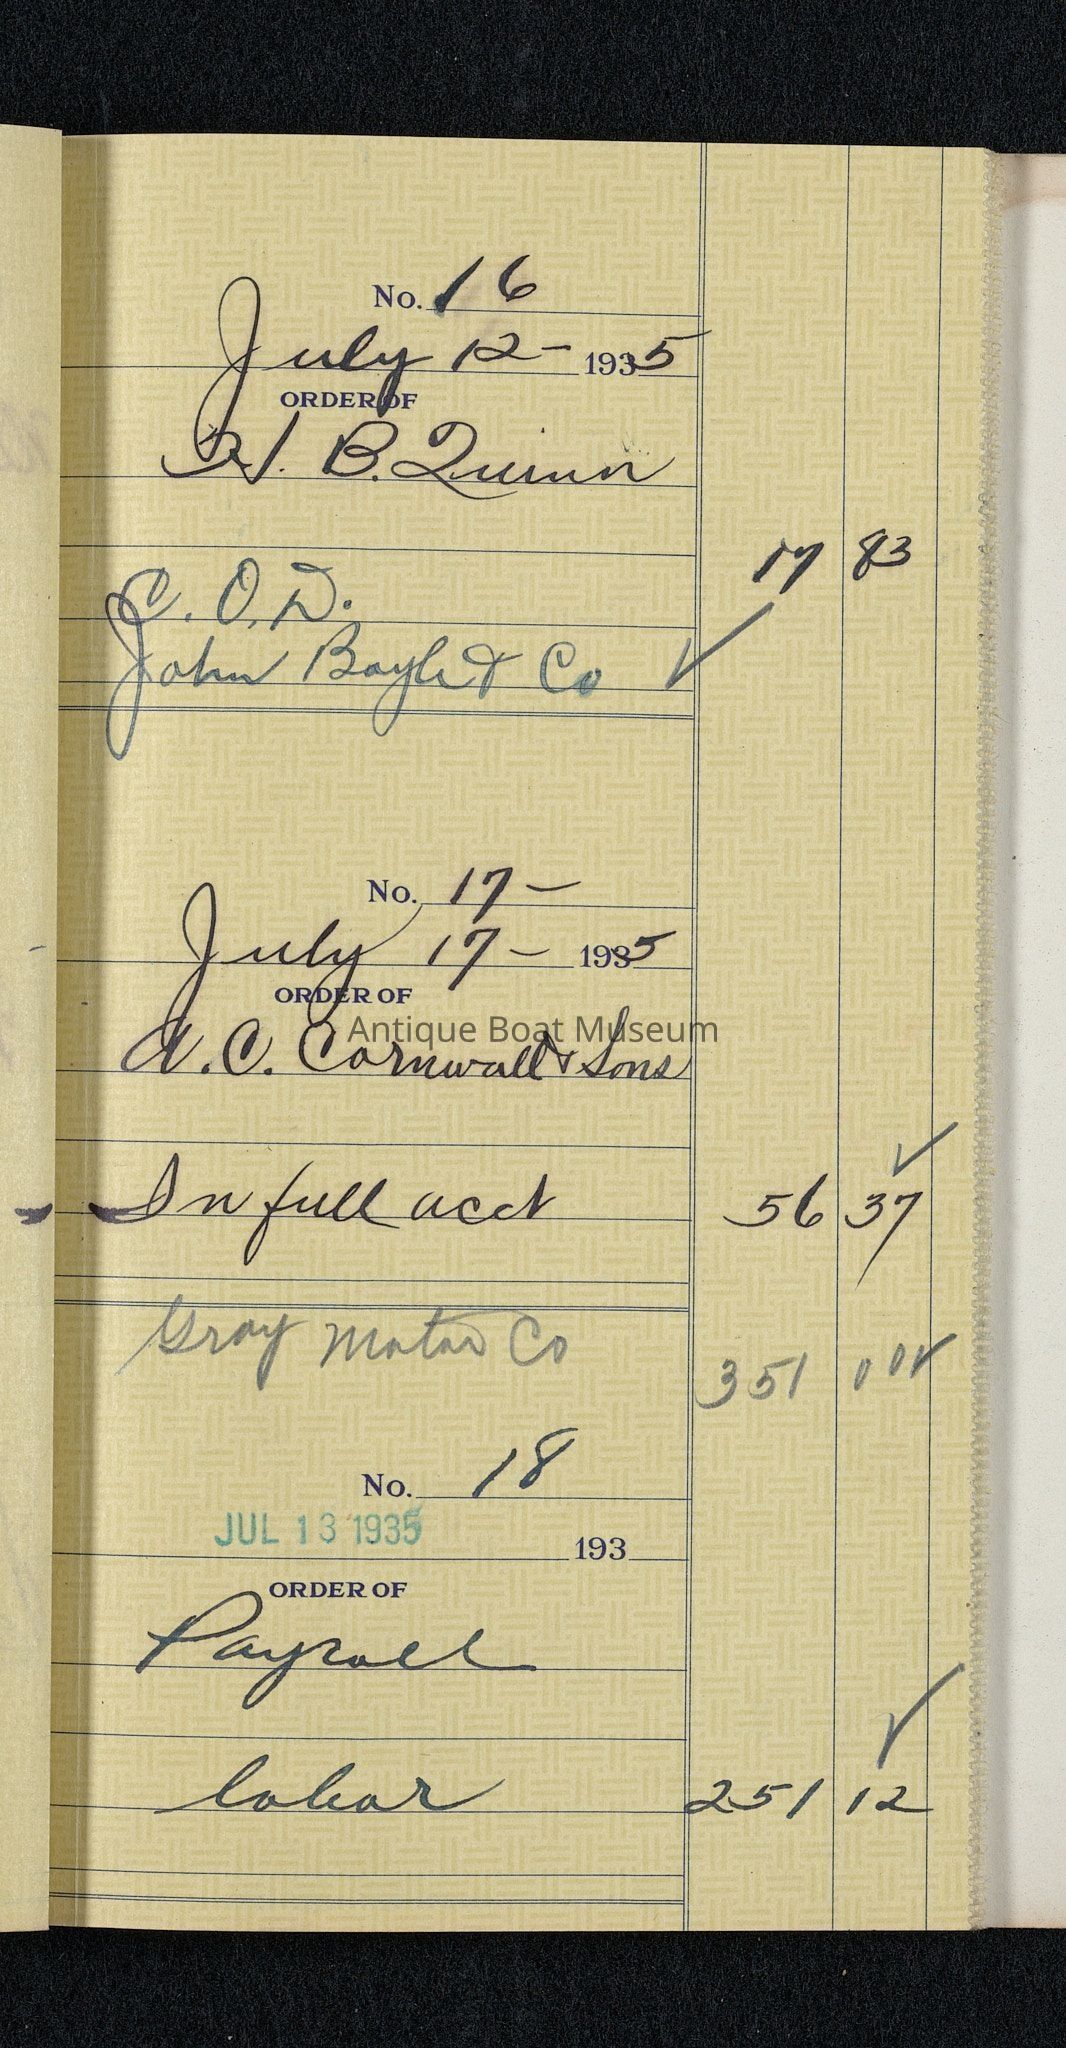 No. 16
July 12- 1935
ORDER OF
H. B. Quinn
17 83
C. O. D.
John Boyle & Co ✓
No. 17-
July 17- 1935
ORDER OF
Antique Boat Museum
A. C. Cornwall & Sons
✓
In full acct 56 37
Gray Motor Co 351 00 ✓
No. 18
JUL 13 1935
193
ORDER OF
Payroll
✓
labor 251 12